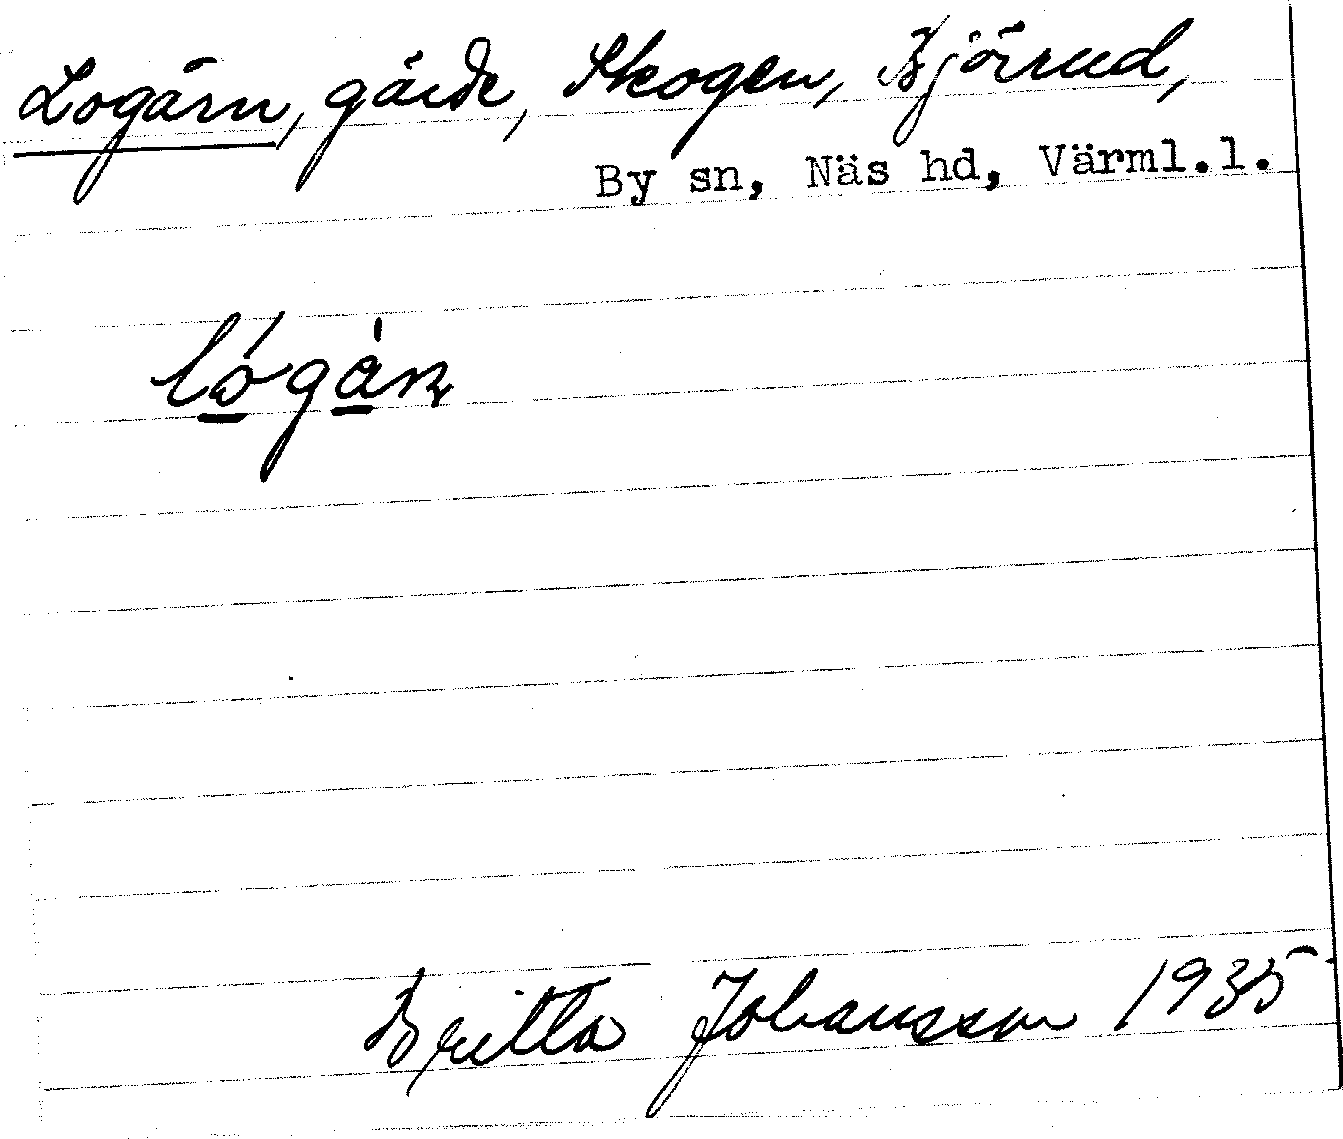 Logärn, gärde, Skogen, Björrud,
By sn, Näs hd, Värml.l.
Britta Johansson 1935